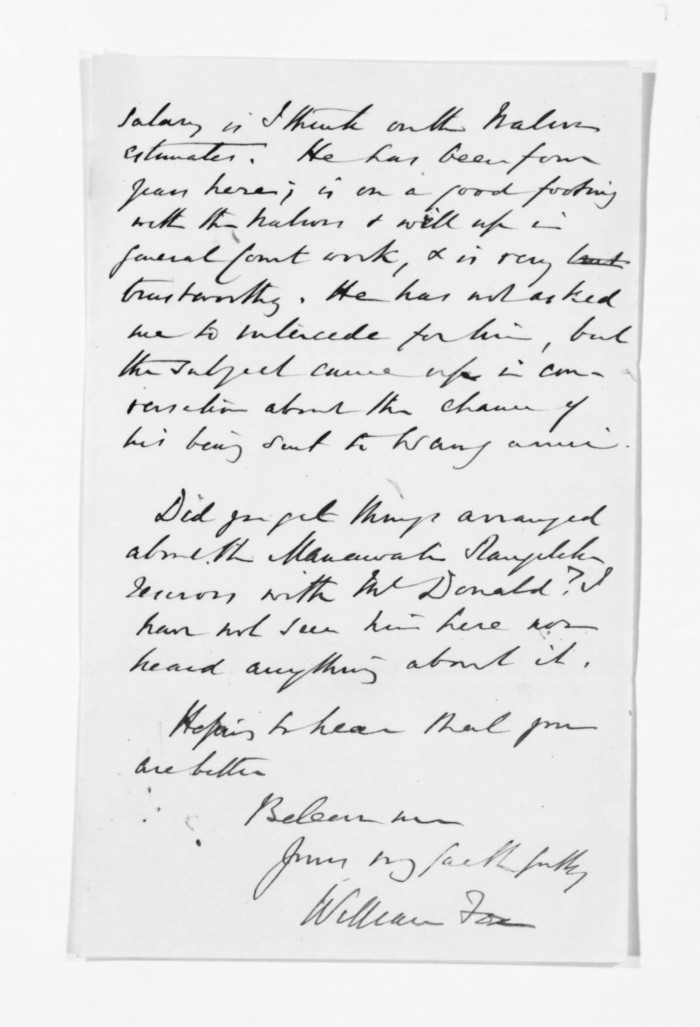 salary is I think on the Native
estimates. He has been four
years here; is on a good footing
with the Natives & well up in
general Court work, & is very but
trustworthy. He has not asked
me to intercede for him, but
the subject came up in con-
versation about the chance of
his being sent to Wanganui.
Did you get things arranged
about the Manawatu Rangitikei
reserves with McDonald? I
have not seen him here nor
heard anything about it.
Hoping to hear that you
are better
Believe me
Yours very faithfully
William Fox